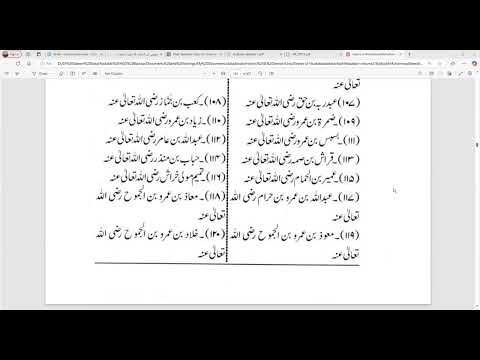 تعالیٰ عنہ
(۱۰۷)۔ عبدربہ بن حق رضی اللہ تعالیٰ عنہ
(۱۰۸)۔ کعب بن جماز رضی اللہ تعالیٰ عنہ
(۱۰۹)۔ ضمرۃ بن عمرو رضی اللہ تعالیٰ عنہ
(۱۱۰)۔ زیاد بن عمرو رضی اللہ تعالیٰ عنہ
(۱۱۱)۔ بسبس بن عمرو رضی اللہ تعالیٰ عنہ
(۱۱۲)۔ عبداللہ بن عامر رضی اللہ تعالیٰ عنہ
(۱۱۳)۔ خراش بن صمہ رضی اللہ تعالیٰ عنہ
(۱۱۴)۔ حباب بن منذر رضی اللہ تعالیٰ عنہ
(۱۱۵)۔ عمیر بن الحمام رضی اللہ تعالیٰ عنہ
(۱۱۶)۔ تمیم مولی خراش رضی اللہ تعالیٰ عنہ
(۱۱۷)۔ عبداللہ بن عمرو بن حرام رضی اللہ
تعالیٰ عنہ
(۱۱۸)۔ معاذ بن عمرو بن الجموح رضی اللہ
تعالیٰ عنہ
(۱۱۹)۔ معوذ بن عمرو بن الجموح رضی اللہ
تعالیٰ عنہ
(۱۲۰)۔ خلاد بن عمرو بن الجموح رضی اللہ
تعالیٰ عنہ